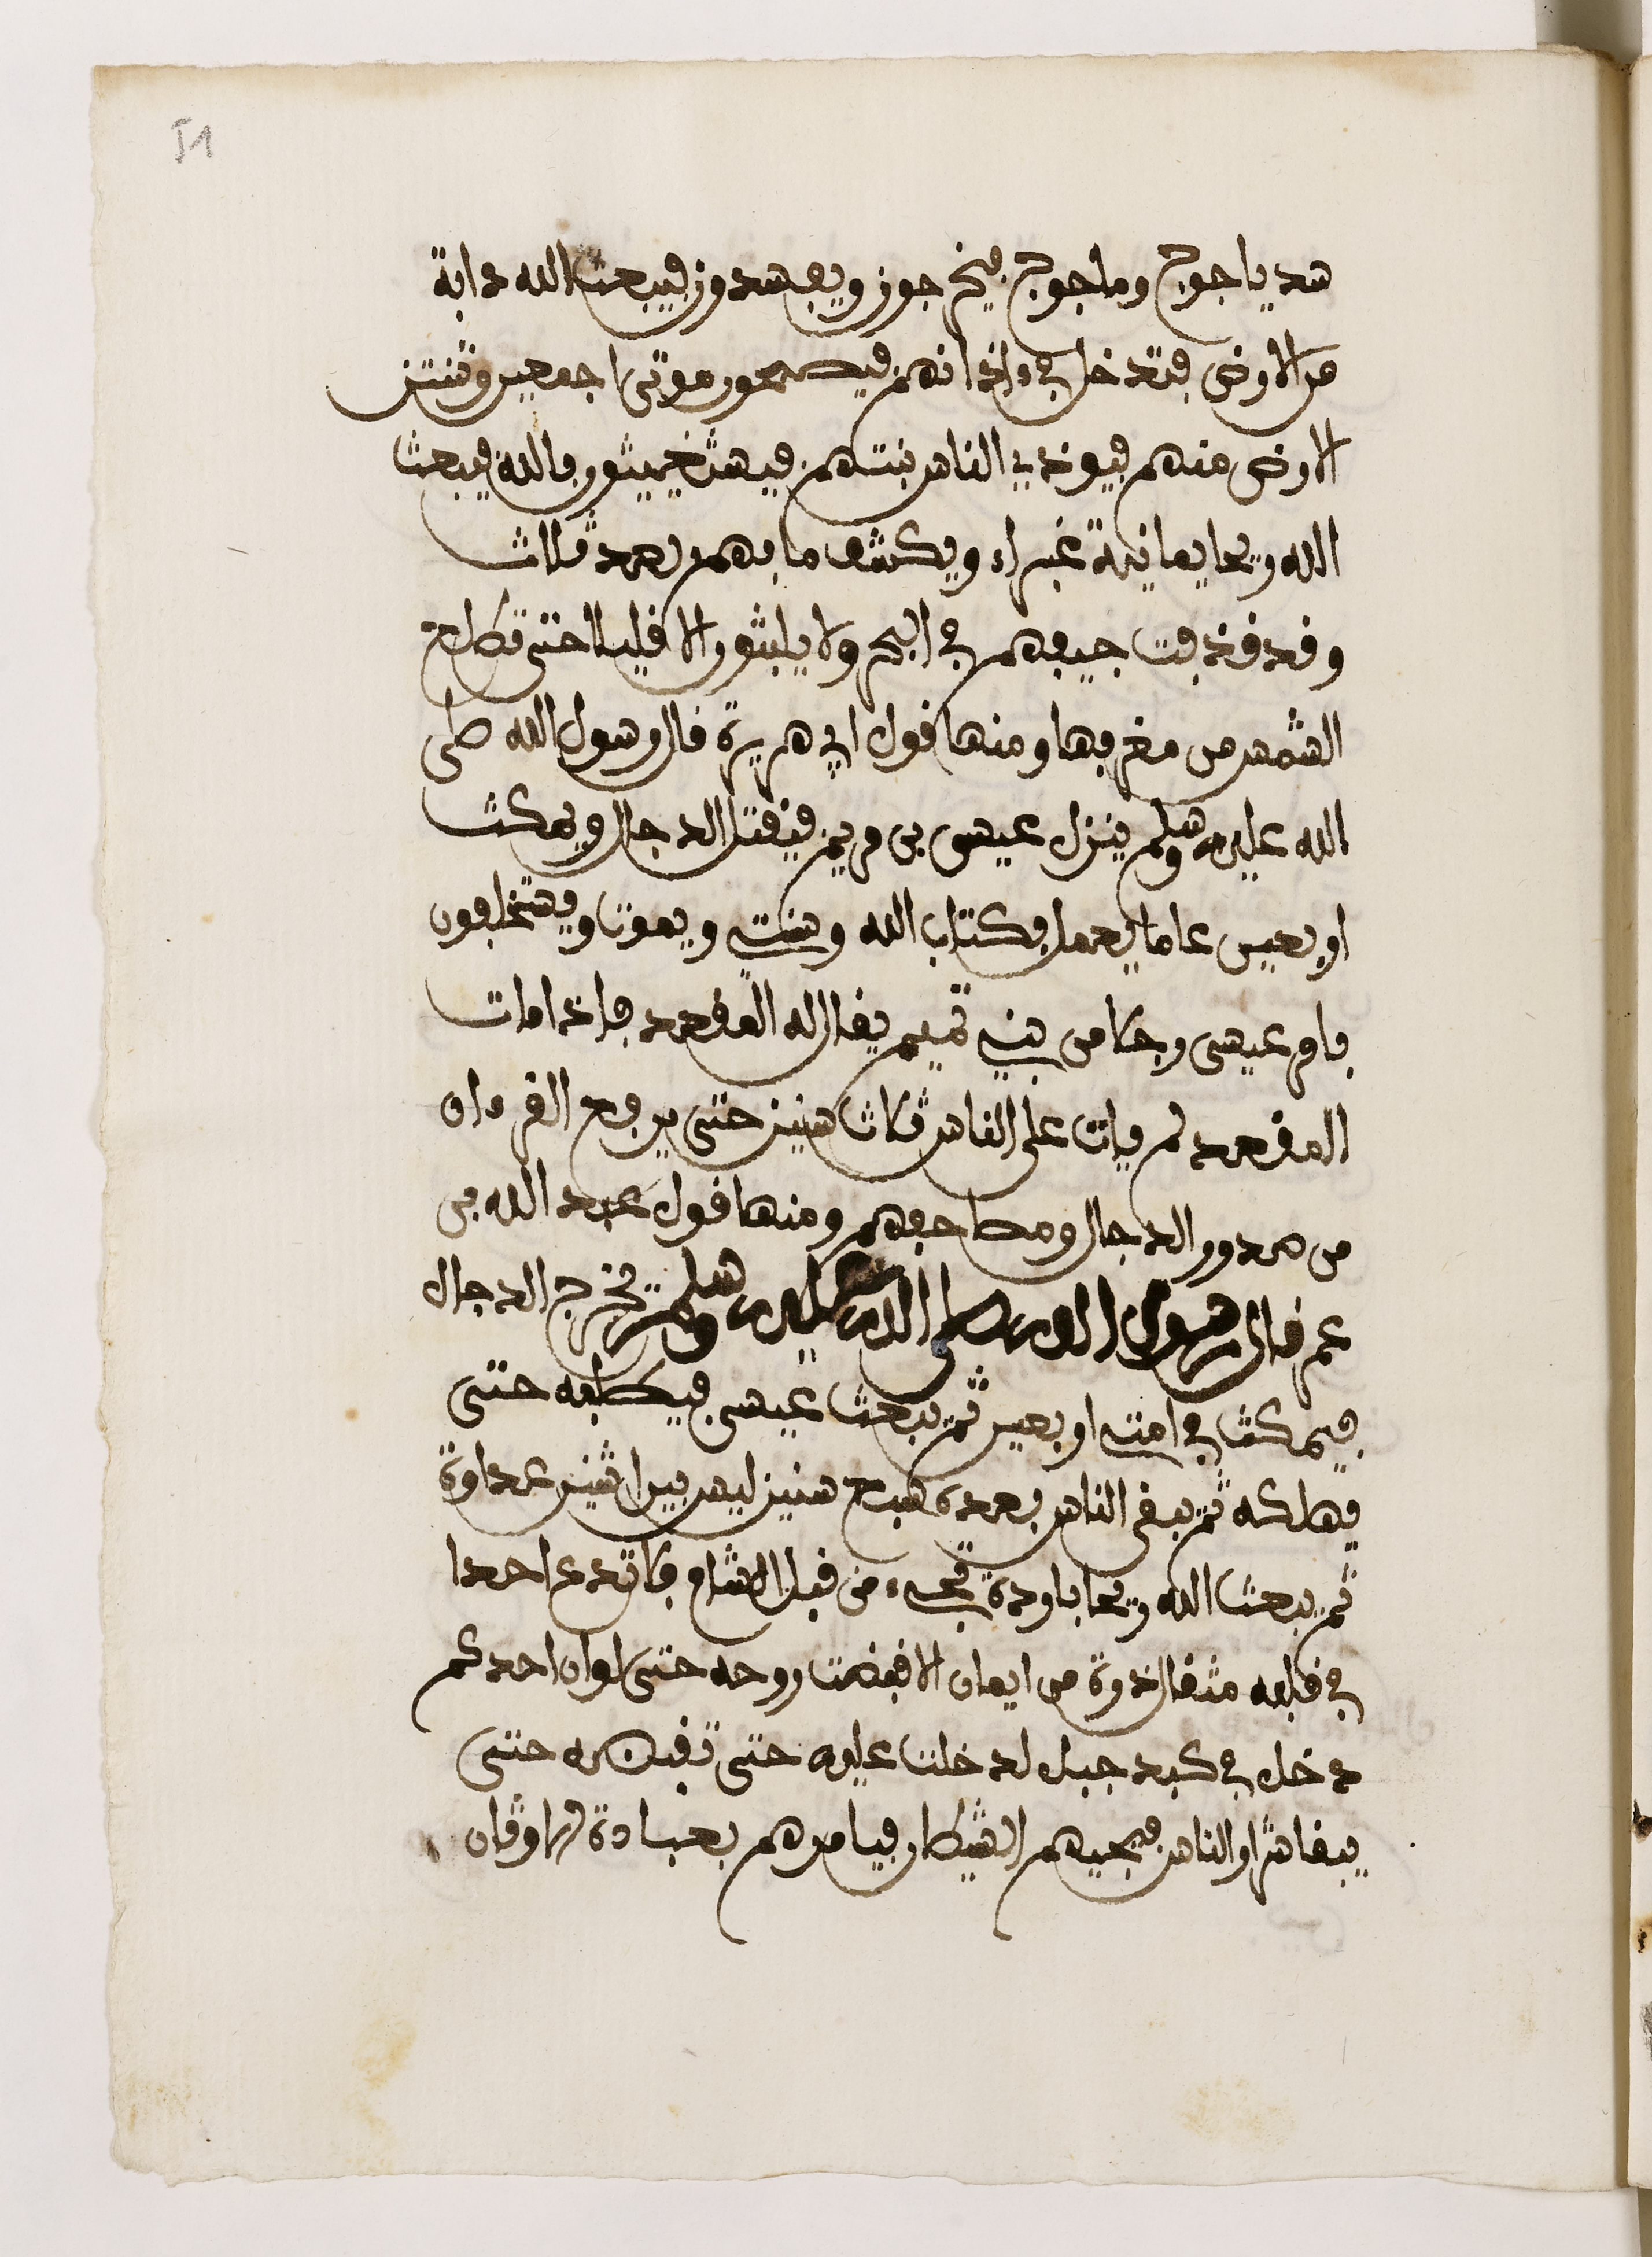 51
سد ياجوج وماجوج فيخرجون ويفسدون فيبعث الله دابة
من الارض فتدخل في ءاذانهم فيصبحون موتى اجمعين وتنتن
الارض منهم فيوذي الناس نتنهم فيستغيثون بالله فيبعث
الله ريحا يمانية غبراء ويكشف ما بهم بعد ثلاث
وقد قذفت جيفهم في البحر ولا يلبثون الا قليلا حتى تطلع
الشمس من مغربها ومنها قول ابي هريرة قال رسول الله صلى
الله عليه وسلم ينزل عيسى بن مريم فيقتل الدجال ويمكث
اربعين عاما يعمل بكتاب الله وسنتي ويموت ويستخلفون
بامر عيسى رجلا من بني تميم يقال له المقعد فاذا مات
المقعد لم يات على الناس ثلاث سنين حتى يرفع القرءان
من صدور الرجال ومصاحفهم ومنها قول عبد الله بن
عمر قال رسول الله صلى الله عليه وسلم يخرج الدجال
فيمكث في امتي اربعين ثم يبعث عيسى فيطلبه حتى
يهلكه ثم يبقى الناس بعده سبع سنين ليس بين اثنين عداوة
ثم يبعث الله ريحا باردة تجيء من قبل الشام فلا تدع احدا
في قلبه مثقال ذرة من ايمان الا قبضت روحه حتى لو ان احدكم
دخل في كبد جبل لدخلت عليه حتى تقبضه حتى
يبقا شرار الناس فيجيهم الشيطان فيامرهم بعبادة الاوثان